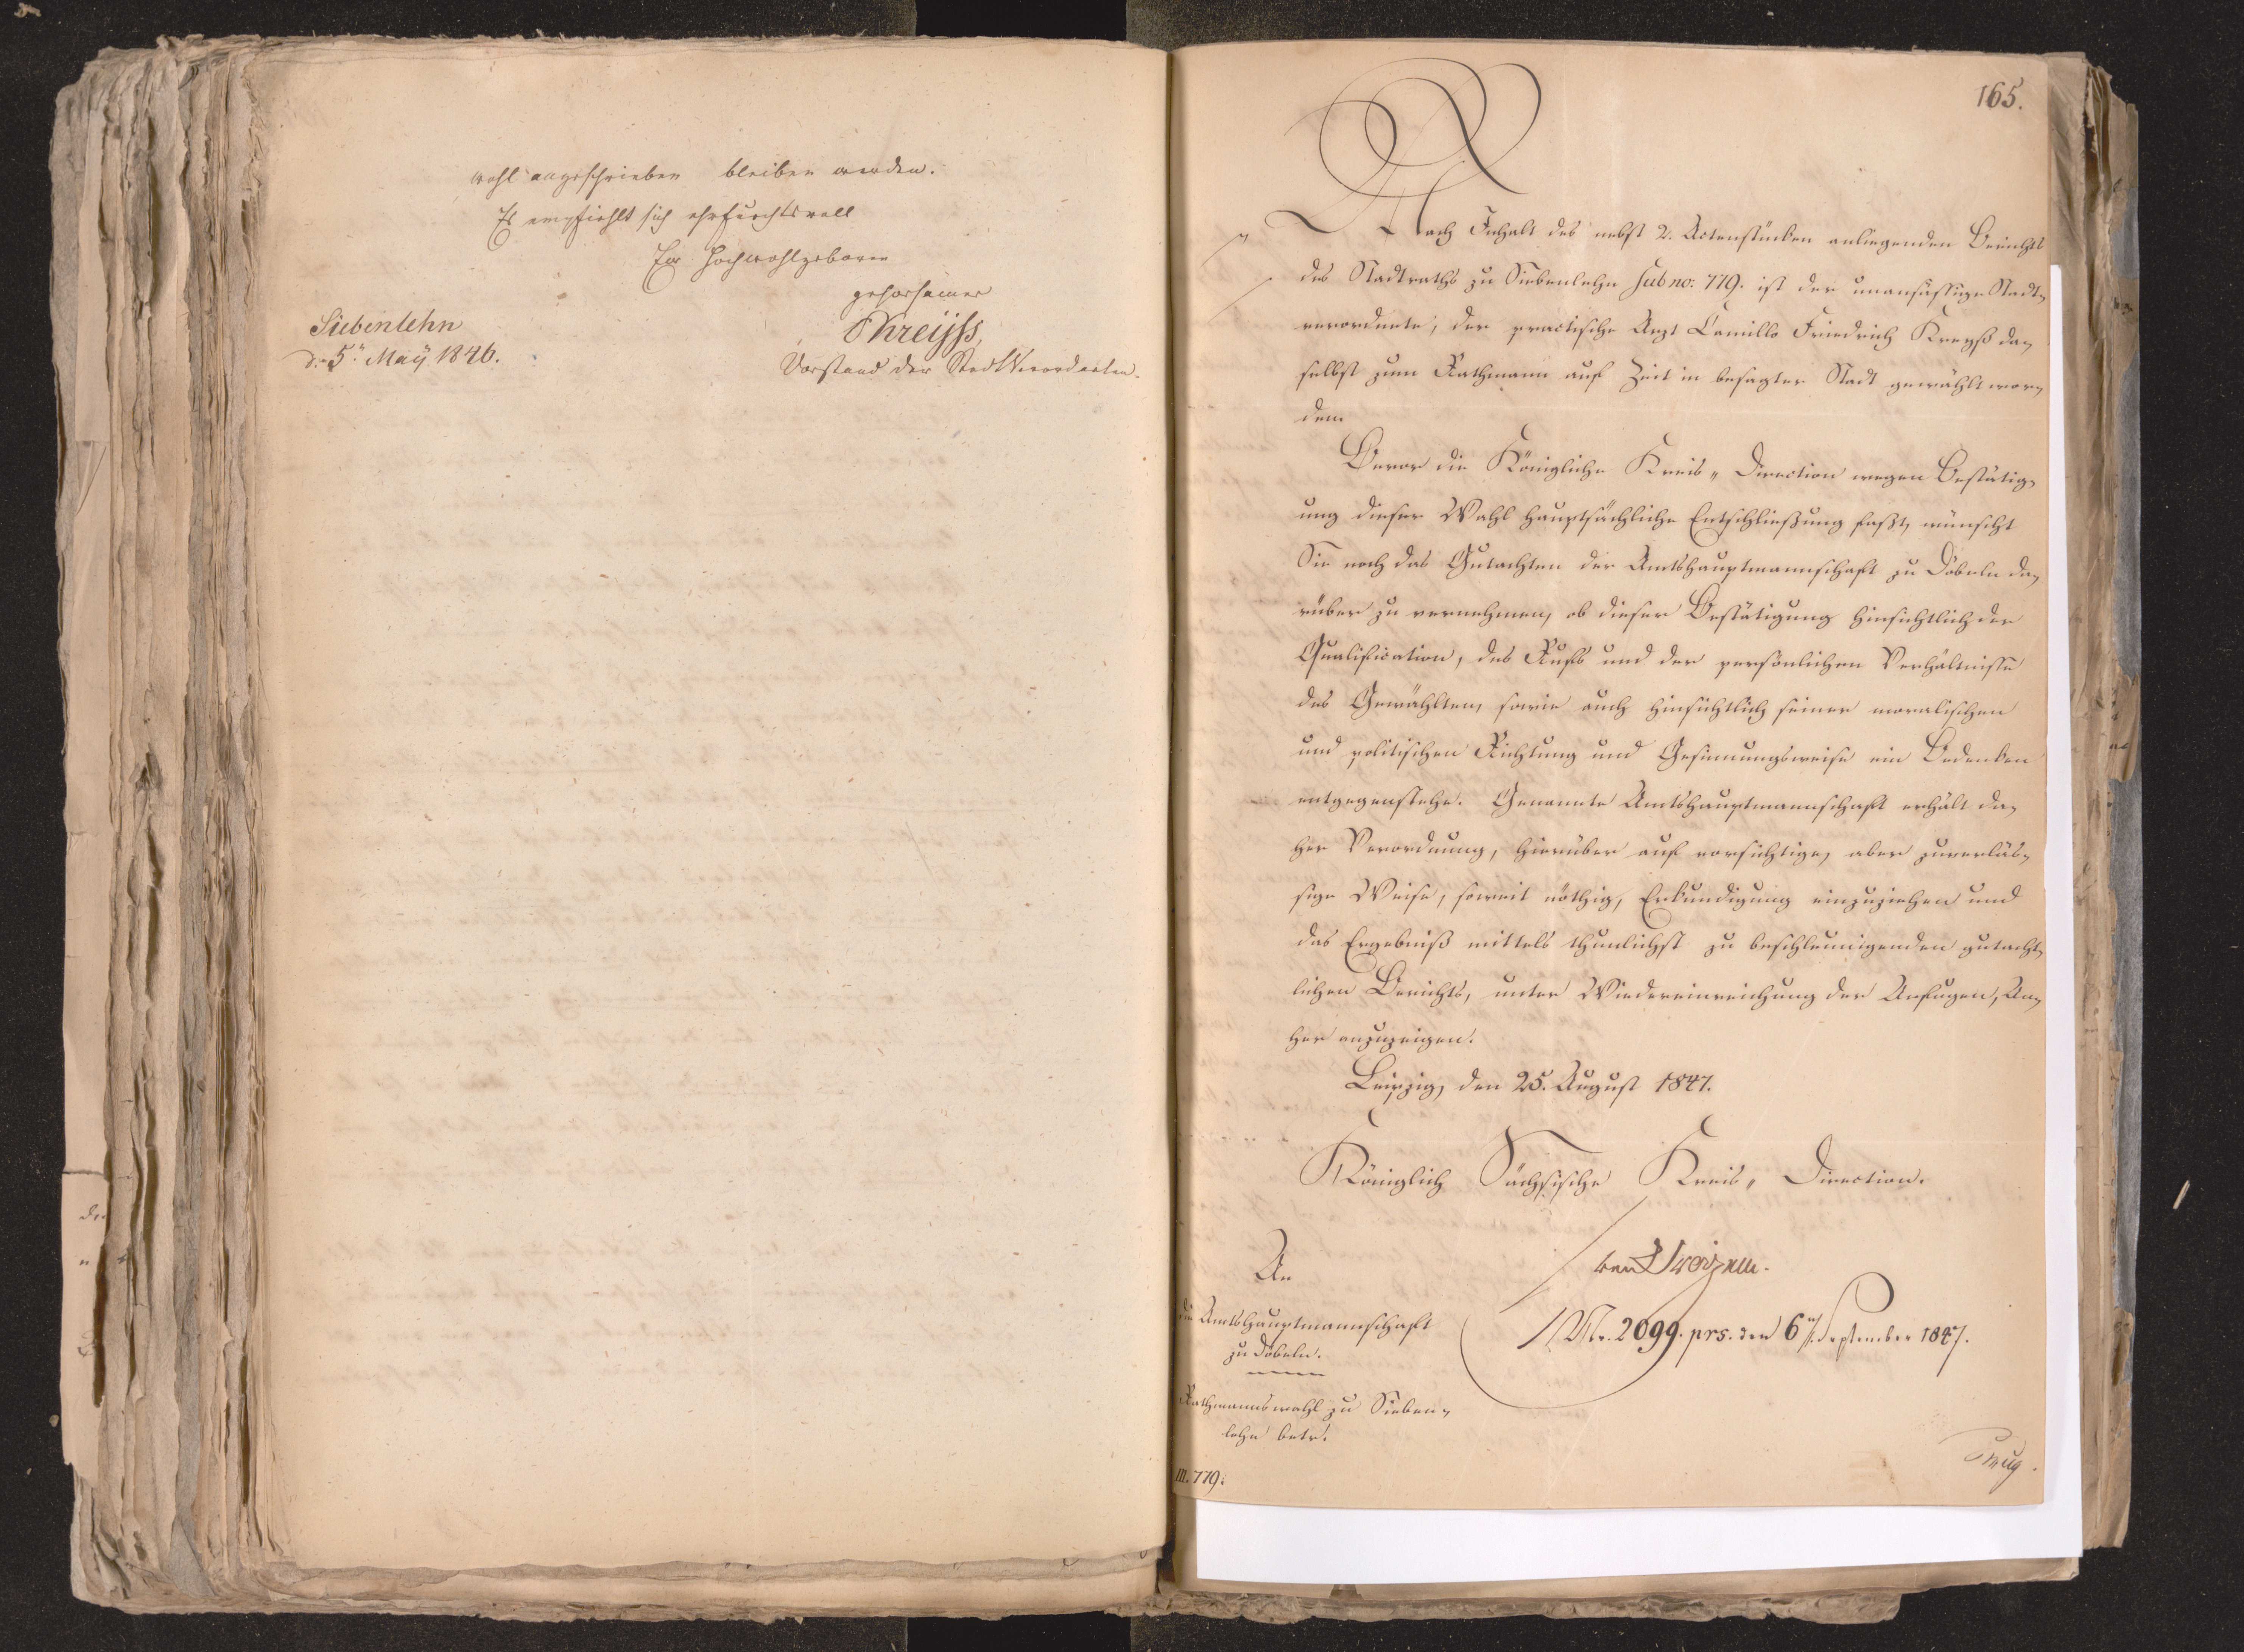 wohl angeschrieben bleiben werden.
Es empfiehlt sich ehrfurchtsvoll
Ew. Hochwohlgeboren
gehorsamer
Siebenlehn
d. 5n May 1846.
Kreyß,
Vorstand der Stadtverordneten.
165.
Nach Inhalt des nebst 2. Actenstücken anliegenden Berichts
des Stadtraths zu Siebenlehn sub no: 779. ist der unansässige Stadt-
verordnete, der practische Arzt Camillo Friedrich Kreyß da-
selbst zum Rathmann auf Zeit in besagter Stadt gewählt wor-
den.
Bevor die Königliche Kreis-Direction wegen Bestätig-
ung dieser Wahl hauptsächliche Entschließung faßt, wünscht
Sie noch das Gutachten der Amtshauptmannschaft zu Döbeln da-
rüber zu vernehmen, ob dieser Bestätigung hinsichtlich der
Qualification, des Rufs und der persönlichen Verhältnisse
des Gewählten, sowie auch hinsichtlich seiner moralischen
und politischen Richtung und Gesinnungsweise ein Bedenken
entgegenstehe. Genannte Amtshauptmannschaft erhält da-
her Verordnung, hierüber auf vorsichtige, aber zuverläs-
sige Weise, soweit nöthig, Erkundigung einzuziehen und
das Ergebniß mittels thunlichst zu beschleunigenden gutacht-
lichen Berichts, unter Wiedereinreichung der Anfugen, An-
her anzuzeigen.
Leipzig, den 25. August 1847.
Königlich Sächsische Kreis-Direction.
An
die Amtshauptmannschaft
zu Döbeln.
Nr. 2099. prs. den 6n September 1847.
Rathmannswahl zu Sieben-
lehn betr.
III. 779.